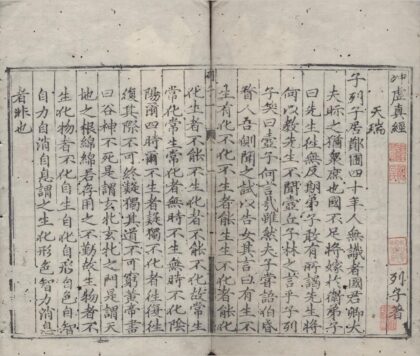 冲虛真經
列子著
天瑞
子列子居鄭圃四十年人無識者國君卿大
夫眎之猶衆庶也國不足將嫁於衛弟子
曰先生往無反期弟子敢有所謁先生將
何以教先生不聞壺丘子林之言乎子列
子笑曰壺子何言哉雖然夫子嘗語伯昏
瞀人吾側聞之試以告女其言曰有生不
生有化不化不生者能生生不化者能化
化生者不能不生化者不能不化故常生
常化常生常化者無時不生無時不化陰
陽爾四時爾不生者疑獨不化者往復往
復其際不可終疑獨其道不可窮黃帝書
曰谷神不死是謂玄牝玄牝之門是謂天
地之根綿綿若存用之不勤故生物者不
生化物者不化自生自化自形自色自智
自力自消自息謂之生化形色智力消息
者非也